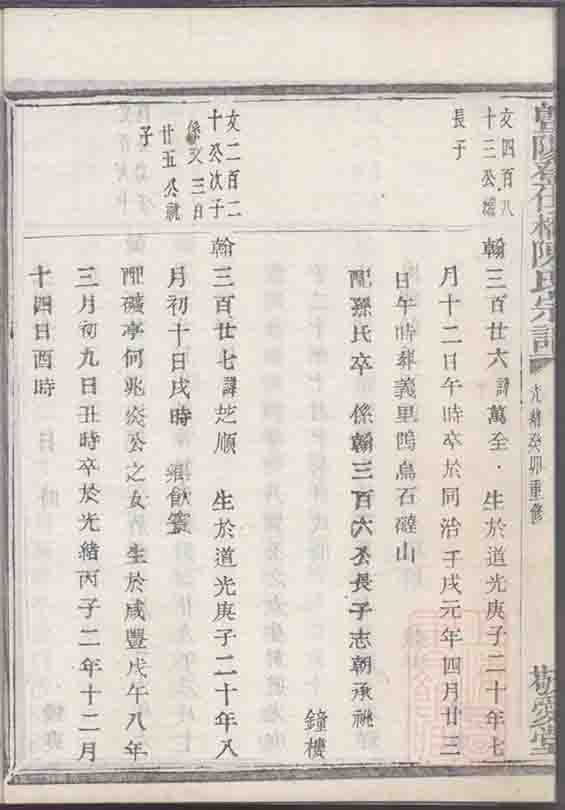 陳氏宗譜
光緒癸卯重修
敬愛堂
文四百八
十三公
長子
翰三百廿六諱萬全 生於道光庚子二十年七
月十二日午時卒於同治壬戌元年四月廿三
日午時葬義里塢烏石礳山
配孫氏卒 係翰三百六公長子志朝承祧
鐘樓
文二百二
十公次子
係文三百
廿五公祧
子
翰三百廿七諱芝順 生於道光庚子二十年八
月初十日戌時 鄉飲賓
配礦亭何兆炎公之女生於咸豐戊午八年
三月初九日丑時卒於光緒丙子二年十二月
十四日酉時